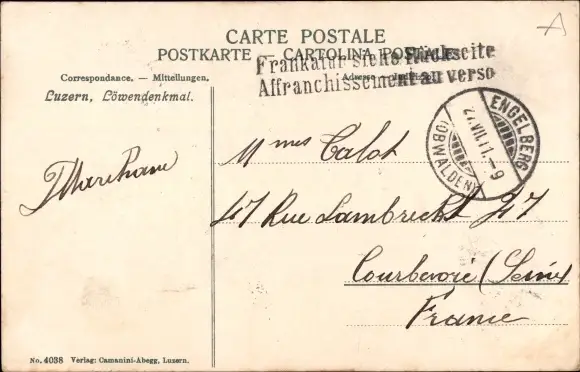 CARTE POSTALE
POSTKARTE — CARTOLINA POSTALE
Frankatur siehe Rückseite
Affranchissement au verso
Correspondance. — Mittellungen.
Adresse
Luzern, Löwendenkmal.
ENGELBERG
27.VII.11.-9
(OBWALDEN)
Mmes Calot
47 Rue Lambrecht 47
Courbevoie (Seine)
France
No. 4038 Verlag: Camanini-Abegg, Luzern.